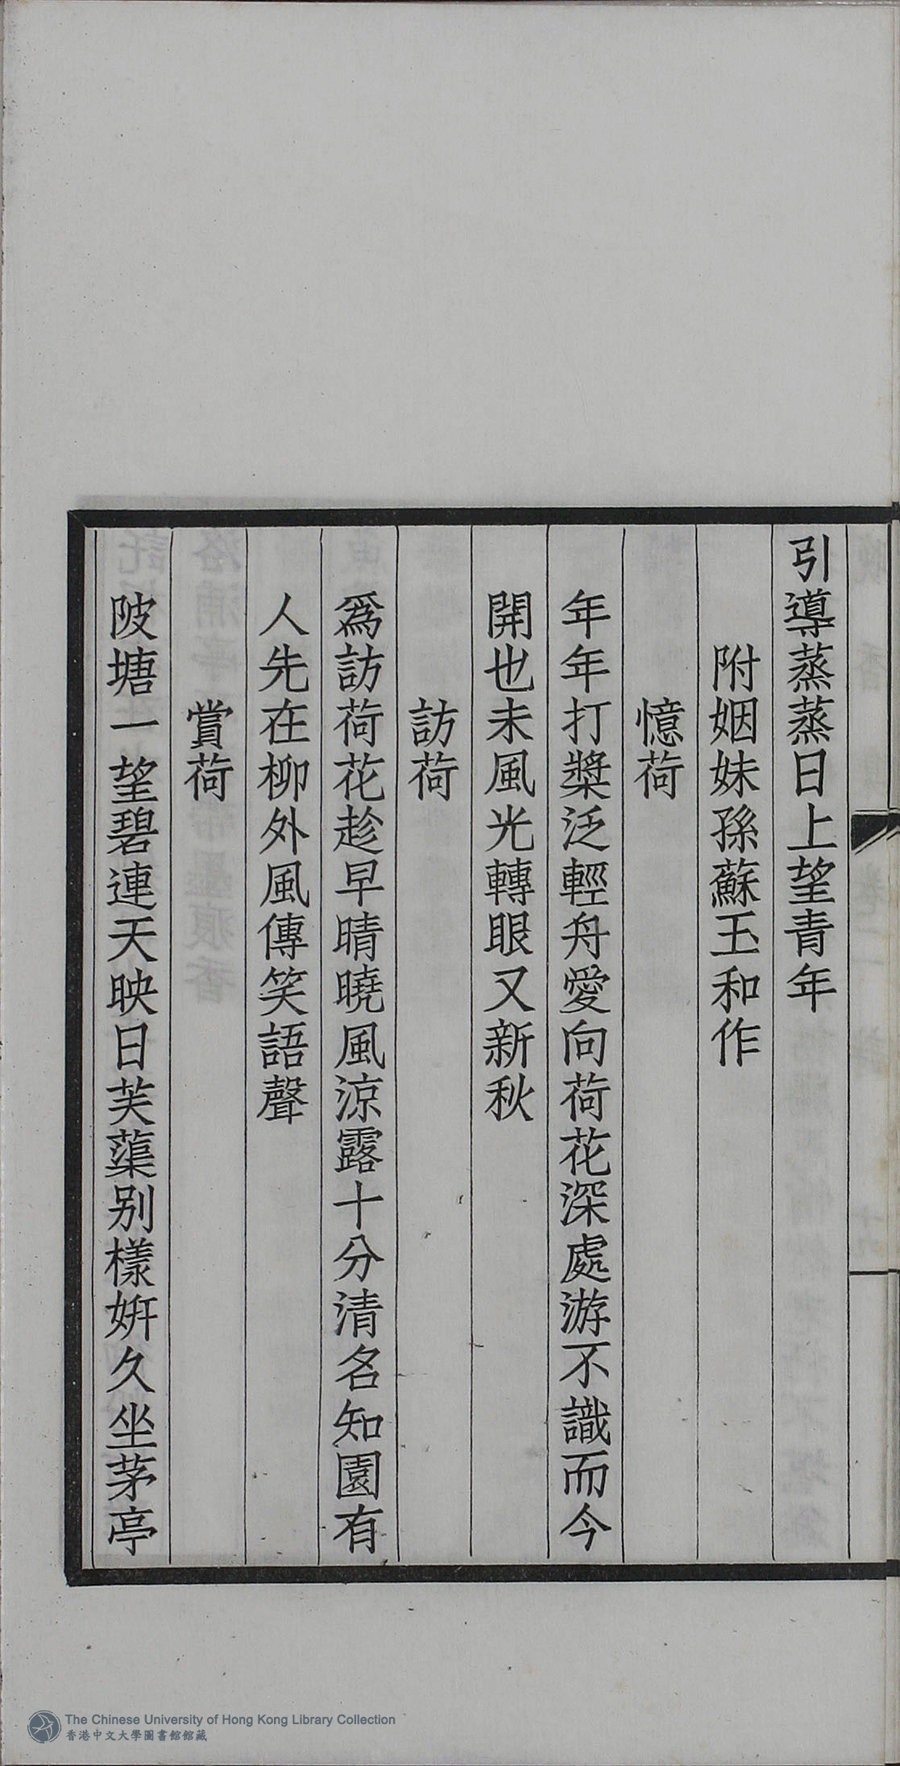 引導蒸蒸日上望青年
附姻妹孫蘇玉和作
憶荷
年年打槳泛輕舟愛向荷花深處游不識而今
開也未風光轉眼又新秋
訪荷
爲訪荷花趁早晴曉風涼露十分清名知園有
人先在柳外風傳笑語聲
賞荷
陂塘一望碧連天映日芙蕖別樣妍久坐茅亭
The Chinese University of Hong Kong Library Collection
香港中文大學圖書館館藏